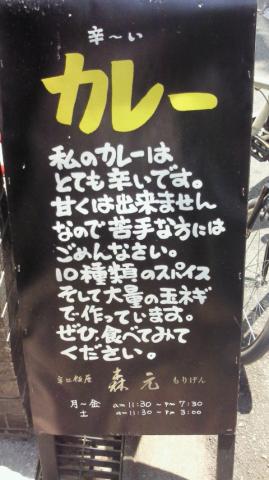 辛〜い
カレー
私のカレーは、
とても辛いです。
甘くは出来ません
なので苦手な方には
ごめんなさい。
10種類のスパイス
そして大量の玉ネギ
で作っています。
ぜひ、食べてみて
ください。
辛口飯屋 森元 もりげん
月〜金 am 11:30 〜 pm 7:30
土 am 11:30 〜 pm 3:00